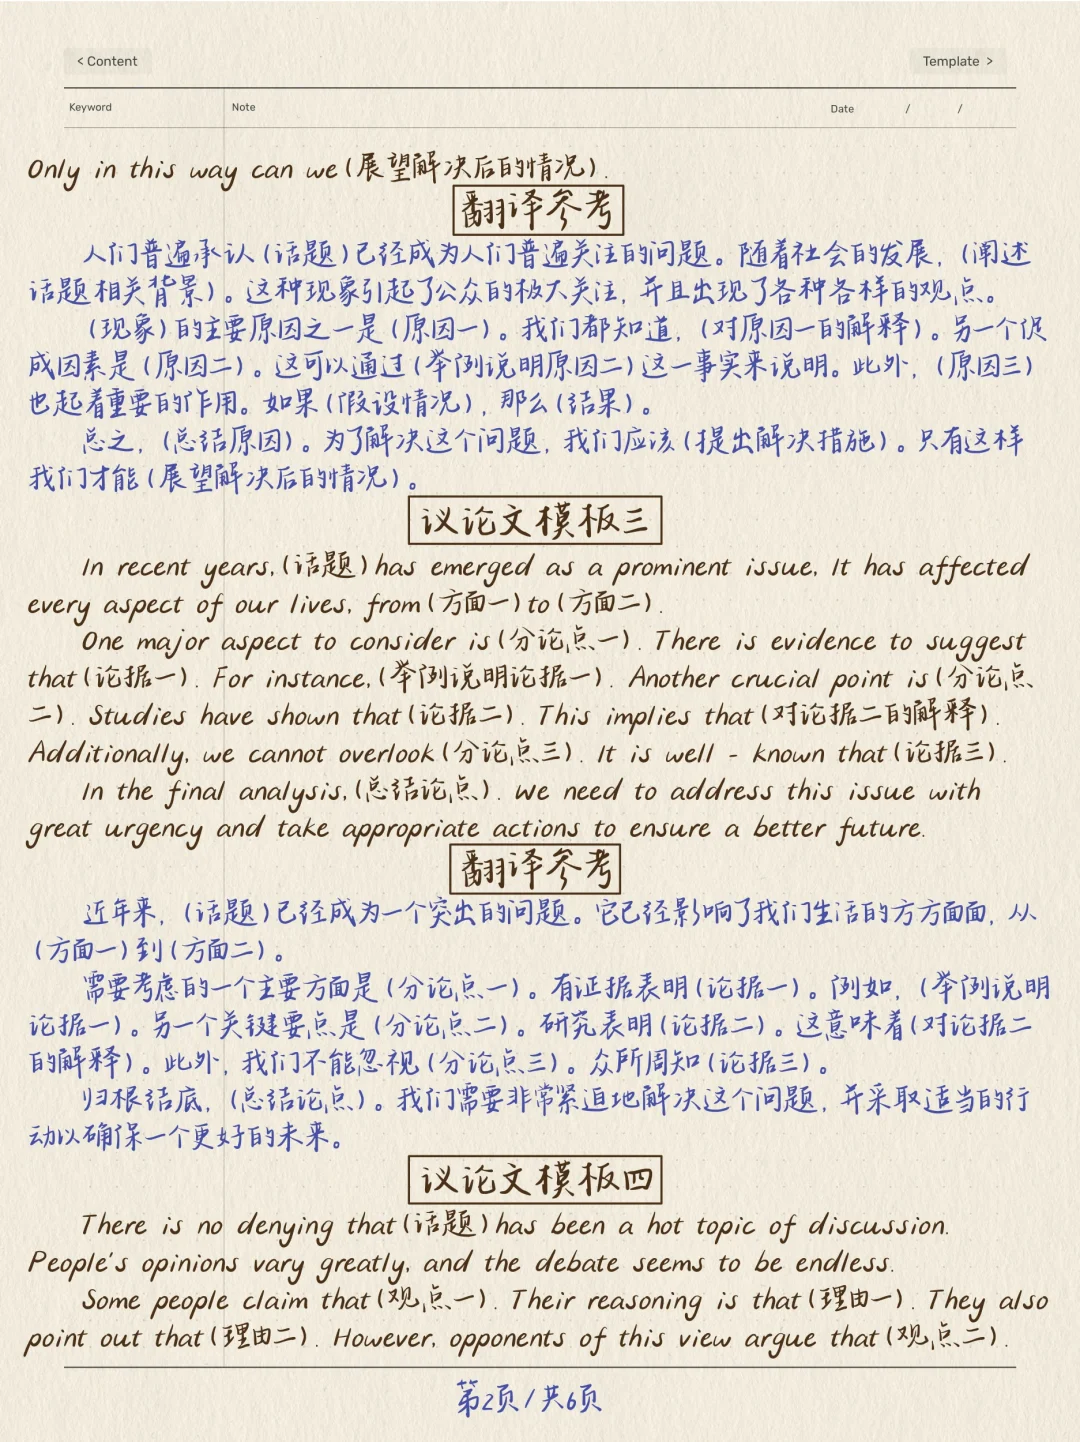 < Content
Template >
Keyword
Note
Date / /
Only in this way can we(展望解决后的情况).
翻译参考
人们普遍承认(话题)已经成为人们普遍关注的问题。随着社会的发展,(阐述
话题相关背景)。这种现象引起了公众的极大关注,并且出现了各种各样的观点。
(现象)的主要原因之一是(原因一)。我们都知道,(对原因一的解释)。另一个促
成因素是(原因二)。这可以通过(举例说明原因二)这一事实来说明。此外,(原因三)
也起着重要的作用。如果(假设情况),那么(结果)。
总之,(总结原因)。为了解决这个问题,我们应该(提出解决措施)。只有这样
我们才能(展望解决后的情况)。
议论文模板三
In recent years,(话题)has emerged as a prominent issue. It has affected
every aspect of our lives, from(方面一)to(方面二).
One major aspect to consider is(分论点一). There is evidence to suggest
that(论据一). For instance,(举例说明论据一). Another crucial point is(分论点
二). Studies have shown that(论据二). This implies that(对论据二的解释).
Additionally, we cannot overlook(分论点三). It is well - known that(论据三).
In the final analysis,(总结论点). We need to address this issue with
great urgency and take appropriate actions to ensure a better future.
翻译参考
近年来,(话题)已经成为一个突出的问题。它已经影响了我们生活的方方面面,从
(方面一)到(方面二)。
需要考虑的一个主要方面是(分论点一)。有证据表明(论据一)。例如,(举例说明
论据一)。另一个关键要点是(分论点二)。研究表明(论据二)。这意味着(对论据二
的解释)。此外,我们不能忽视(分论点三)。众所周知(论据三)。
归根结底,(总结论点)。我们需要非常紧迫地解决这个问题,并采取适当的行
动以确保一个更好的未来。
议论文模板四
There is no denying that(话题)has been a hot topic of discussion.
People's opinions vary greatly, and the debate seems to be endless.
Some people claim that(观点一). Their reasoning is that(理由一). They also
point out that(理由二). However, opponents of this view argue that(观点二).
第2页/共6页